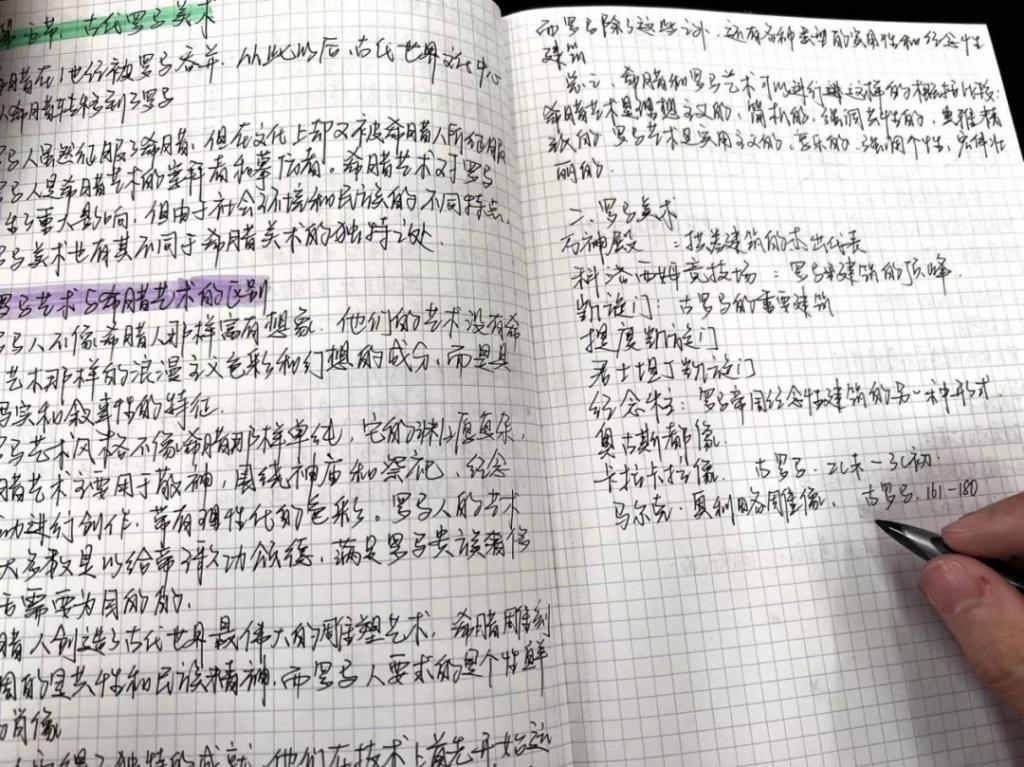 第五节 古代罗马美术
腊在1世纪被罗马吞并，从此以后，古代世界文化中心
从希腊转移到了罗马
罗马人虽然征服了希腊，但在文化上却又被希腊人所征服
罗马人是希腊艺术的崇拜者和摹仿者。希腊艺术对于罗马
重大影响，但由于社会环境和民族的不同特点，
罗马美术也有其不同于希腊美术的独特之处。
罗马艺术与希腊艺术的区别
罗马人不像希腊人那样富有想象，他们的艺术没有希
艺术那样的浪漫主义色彩和幻想的成分，而是具
写实和叙事性的特征。
罗马艺术风格不像希腊那样单纯，它的
腊艺术主要用于敬神，围绕神庙和祭祀、纪念
动进行创作，带有理性化的色彩。罗马人的艺术
大多数是以给帝歌功颂德，满足罗马贵族奢侈
活需要为目的的。
腊人创造了古代世界最伟大的雕塑艺术，希腊雕刻
调的是共性和民族精神，而罗马人要求的是个性鲜
的肖像
独特的成就，他们在技术上首先开始运
而罗马除了这些以外，还有各种类型的实用性和纪念性
建筑
总之，希腊和罗马艺术可以进行这样的概括比较：
希腊艺术是理想主义的、简朴的、强调共性的、典雅精
致的，罗马艺术是实用主义的、享乐的、强调个性、宏伟壮
丽的。
二、罗马美术
万神殿：拱券建筑的杰出代表
科洛西姆竞技场：罗马建筑的顶峰。
凯旋门：古罗马的重要建筑
提度凯旋门
君士坦丁凯旋门
纪念柱：罗马帝国纪念性建筑的另一种形式。
奥古斯都像
卡拉卡拉像、古罗马. 2C末-3C初.
马尔克·奥利略雕像、古罗马. 161-180